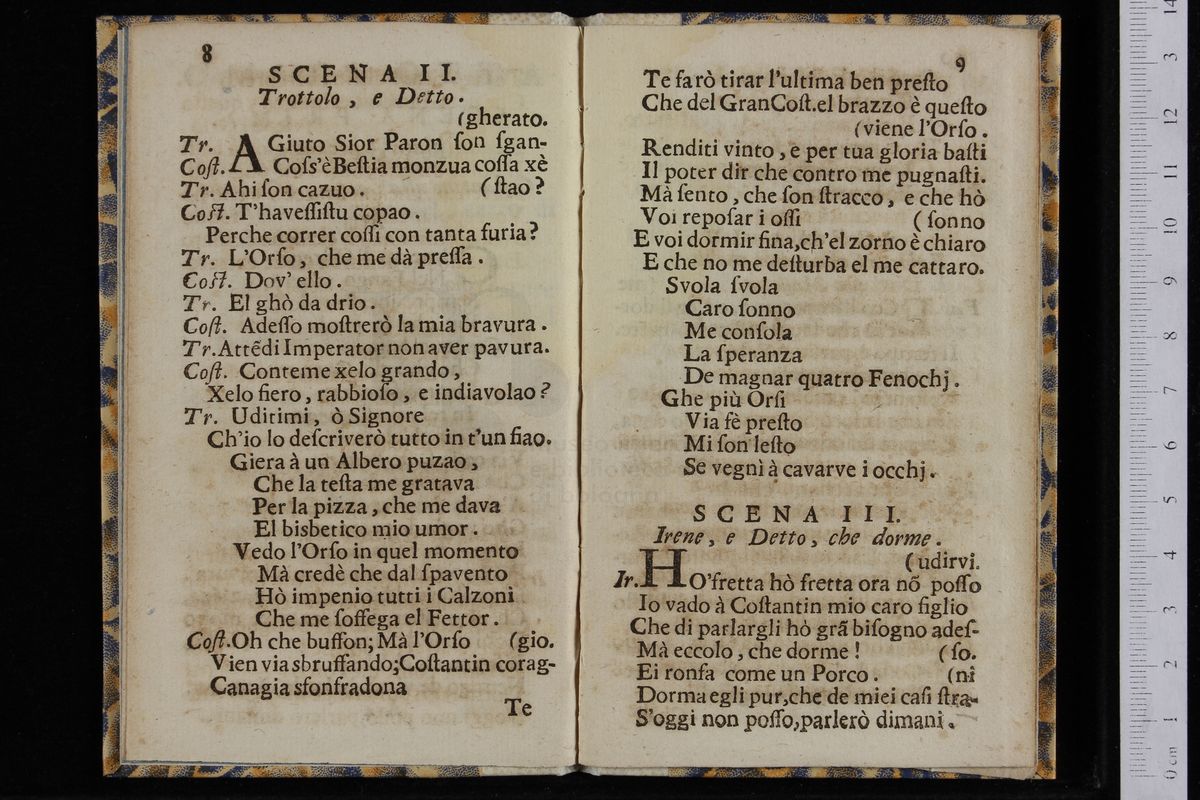 8
SCENA II.
Trottolo, e Detto.
(gherato.
Tr. AGiuto Sior Paron ſon ſgan-
Coſt. Coſs'èBeſtia monzua coſſa xè
Tr. Ahi ſon cazuo. (ſtao?
Coſt. T'haveſſiſtu copao.
Perche correr coſſi con tanta furia?
Tr. L'Orſo, che me dà preſſa.
Coſt. Dov' ello.
Tr. El ghò da drio.
Coſt. Adeſſo moſtrerò la mia bravura.
Tr. Attẽdi Imperator non aver pavura.
Coſt. Conteme xelo grando,
Xelo fiero, rabbioſo, e indiavolao?
Tr. Uditimi, ò Signore
Ch'io lo deſcriverò tutto in t'un fiao.
Giera à un Albero puzao,
Che la teſta me gratava
Per la pizza, che me dava
El bisbetico mio umor.
Vedo l'Orſo in quel momento
Mà credè che dal ſpavento
Hò impenio tutti i Calzoni
Che me ſoffega el Fettor.
Coſt. Oh che buffon; Mà l'Orſo (gio.
Vien via sbruffando;Coſtantin corag-
Canagia sfonfradona
Te
9
Te farò tirar l'ultima ben preſto
Che del GranCoſt.el brazzo è queſto
(viene l'Orſo.
Renditi vinto, e per tua gloria baſti
Il poter dir che contro me pugnaſti.
Mà ſento, che ſon ſtracco, e che hò
Voi repoſar i oſſi (ſonno
E voi dormir fina,ch'el zorno è chiaro
E che no me deſturba el me cattaro.
Svola ſvola
Caro ſonno
Me conſola
La ſperanza
De magnar quatro Fenochj.
Ghe più Orſi
Via fè preſto
Mi ſon leſto
Se vegnì à cavarve i occhj.
SCENA III.
Irene, e Detto, che dorme.
(udirvi.
Ir. HO'fretta hò fretta ora nõ poſſo
Io vado à Coſtantin mio caro figlio
Che di parlargli hò grã biſogno adeſ-
Mà eccolo, che dorme! (ſo.
Ei ronfa come un Porco. (ni
Dorma egli pur,che de miei caſi ſtra-
S'oggi non poſſo,parlerò dimani.
0 cm 1 2 3 4 5 6 7 8 9 10 11 12 13 14